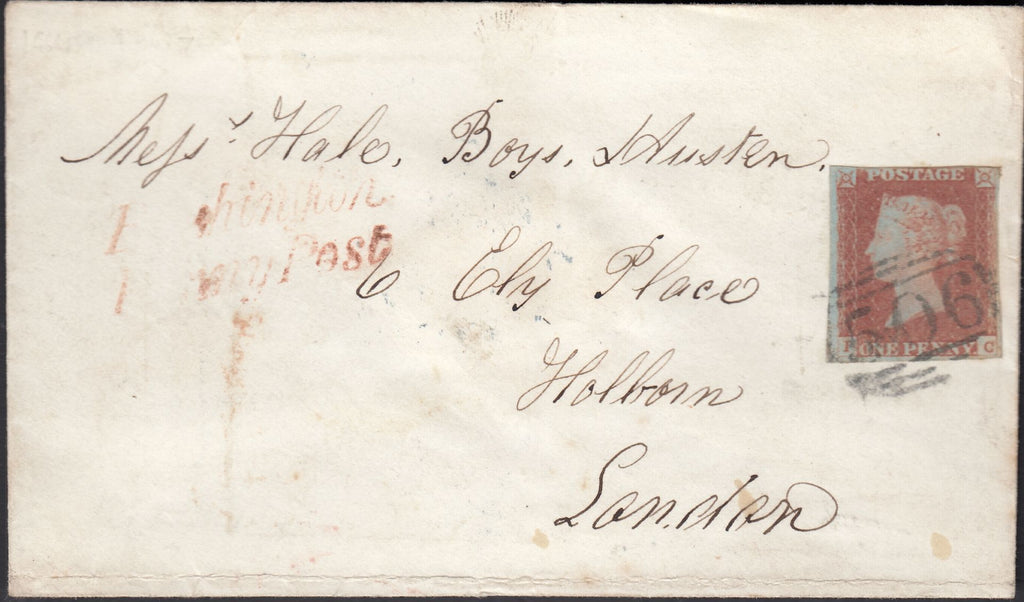 Messrs. Hale, Boys, & Austen,
Post
6 Ely Place
Holborn
London
POSTAGE
506
ONE PENNY C